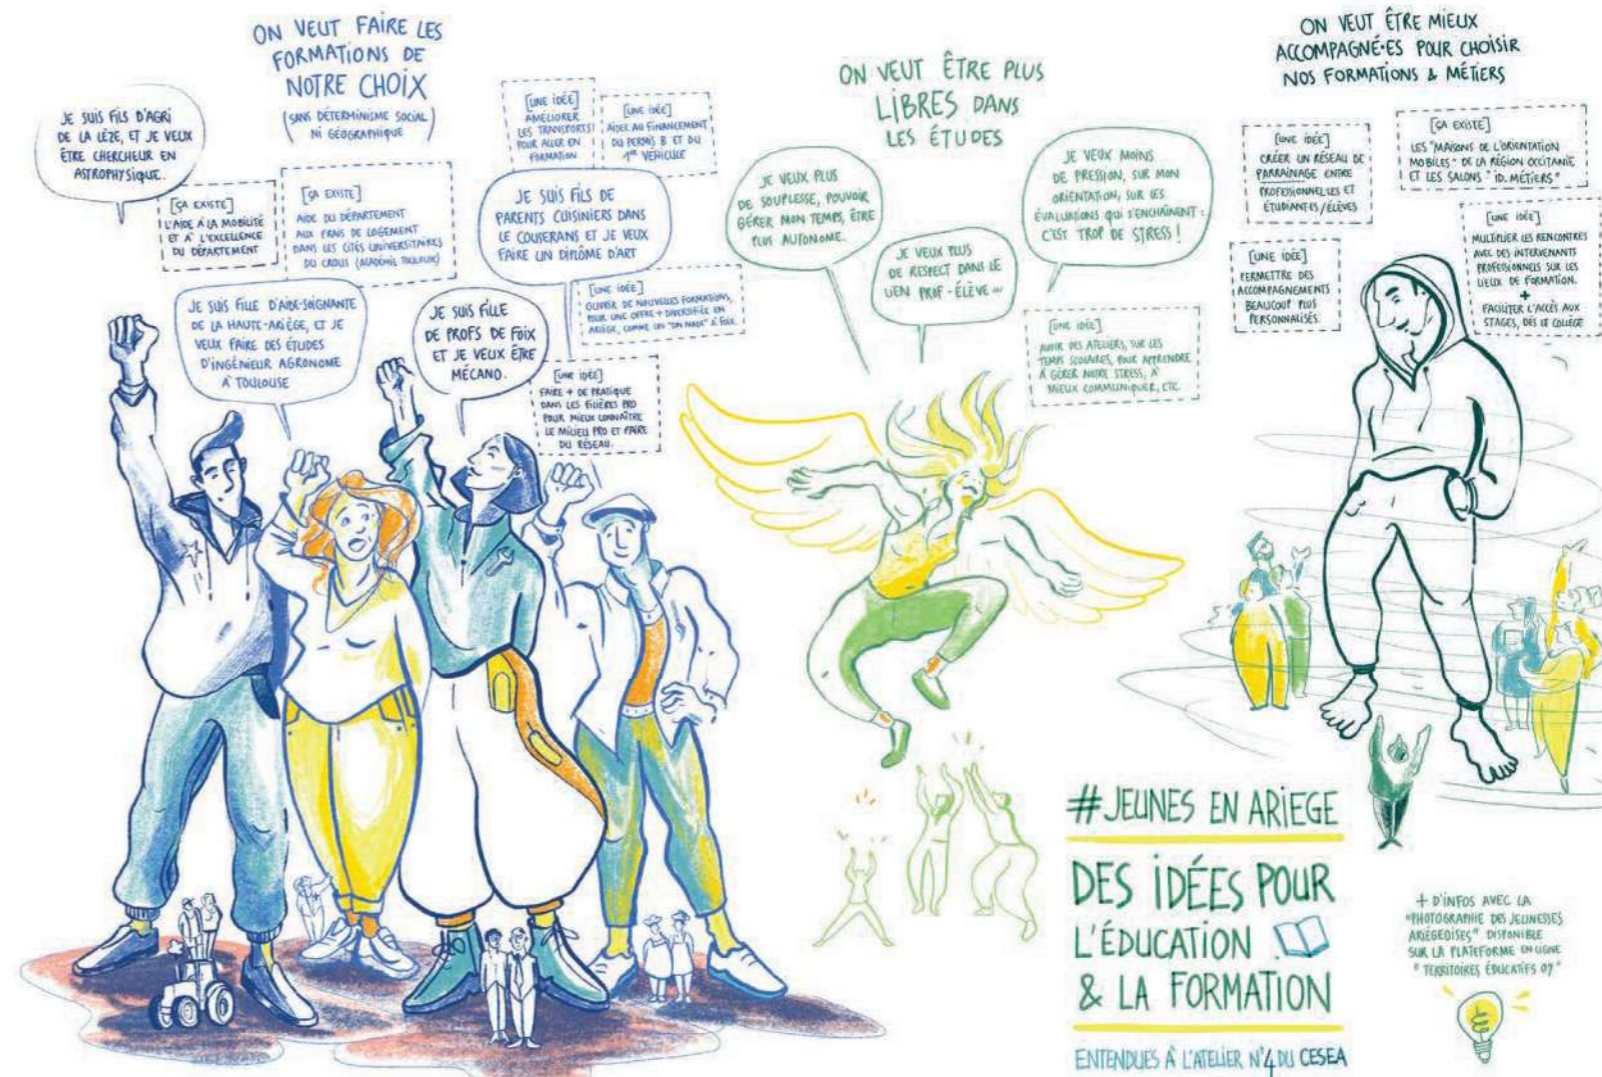 ON VEUT FAIRE LES
FORMATIONS DE
NOTRE CHOIX
(SANS DÉTERMINISME SOCIAL
NI GÉOGRAPHIQUE)
JE SUIS FILS D'AGRI
DE LA LÈZE, ET JE VEUX
ÊTRE CHERCHEUR EN
ASTROPHYSIQUE.
[ÇA EXISTE]
L'AIDE À LA MOBILITÉ
ET À L'EXCELLENCE
DU DÉPARTEMENT
[ÇA EXISTE]
AIDE DU DÉPARTEMENT
AUX FRAIS DE LOGEMENT
DANS LES CITÉS UNIVERSITAIRES
DU CROUS (ACADÉMIE TOULOUSE)
[UNE IDÉE]
AMÉLIORER
LES TRANSPORTS
POUR ALLER EN
FORMATION
[UNE IDÉE]
AIDER AU FINANCEMENT
DU PERMIS B ET DU
1ER VÉHICULE
JE SUIS FILS DE
PARENTS CUISINIERS DANS
LE COUSERANS ET JE VEUX
FAIRE UN DIPLÔME D'ART
JE SUIS FILLE D'AIDE-SOIGNANTE
DE LA HAUTE-ARIÈGE, ET JE
VEUX FAIRE DES ÉTUDES
D'INGÉNIEUR AGRONOME
À TOULOUSE
JE SUIS FILLE
DE PROFS DE FOIX
ET JE VEUX ÊTRE
MÉCANO.
[UNE IDÉE]
OUVRIR DE NOUVELLES FORMATIONS,
POUR UNE OFFRE + DIVERSIFIÉE EN
ARIÈGE, COMME UN "DN MADE" À FOIX.
[UNE IDÉE]
FAIRE + DE PRATIQUE
DANS LES FILIÈRES PRO
POUR MIEUX CONNAÎTRE
LE MILIEU PRO ET FAIRE
DU RÉSEAU.
ON VEUT ÊTRE PLUS
LIBRES DANS
LES ÉTUDES
JE VEUX PLUS
DE SOUPLESSE, POUVOIR
GÉRER MON TEMPS, ÊTRE
PLUS AUTONOME.
JE VEUX PLUS
DE RESPECT DANS LE
LIEN PROF-ÉLÈVE...
JE VEUX MOINS
DE PRESSION, SUR MON
ORIENTATION, SUR LES
ÉVALUATIONS QUI S'ENCHAÎNENT :
C'EST TROP DE STRESS !
[UNE IDÉE]
AVOIR DES ATELIERS, SUR LES
TEMPS SCOLAIRES, POUR APPRENDRE
À GÉRER NOTRE STRESS, À
MIEUX COMMUNIQUER, ETC.
ON VEUT ÊTRE MIEUX
ACCOMPAGNÉ·ES POUR CHOISIR
NOS FORMATIONS & MÉTIERS
[UNE IDÉE]
CRÉER UN RÉSEAU DE
PARRAINAGE ENTRE
PROFESSIONNEL·LES ET
ÉTUDIANT·ES/ÉLÈVES
[ÇA EXISTE]
LES "MAISONS DE L'ORIENTATION
MOBILES" DE LA RÉGION OCCITANIE
ET LES SALONS "ID. MÉTIERS"
[UNE IDÉE]
PERMETTRE DES
ACCOMPAGNEMENTS
BEAUCOUP PLUS
PERSONNALISÉS.
[UNE IDÉE]
MULTIPLIER LES RENCONTRES
AVEC DES INTERVENANTS
PROFESSIONNELS SUR LES
LIEUX DE FORMATION.
+
FACILITER L'ACCÈS AUX
STAGES, DÈS LE COLLÈGE
#JEUNES EN ARIEGE
DES IDÉES POUR
L'ÉDUCATION
& LA FORMATION
ENTENDUES À L'ATELIER N°4 DU CESEA
+ D'INFOS AVEC LA
"PHOTOGRAPHIE DES JEUNESSES
ARIÉGEOISES" DISPONIBLE
SUR LA PLATEFORME EN LIGNE
"TERRITOIRES ÉDUCATIFS 09"